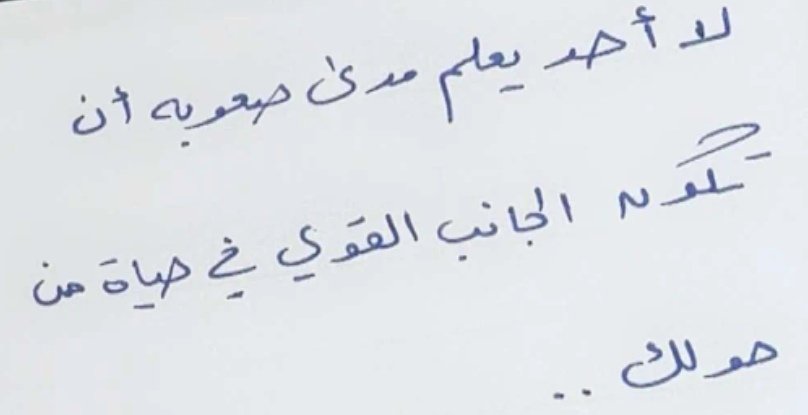 لا أحد يعلم مدى صعوبه أن
تكون الجانب القوي في حياة من
حولك ..